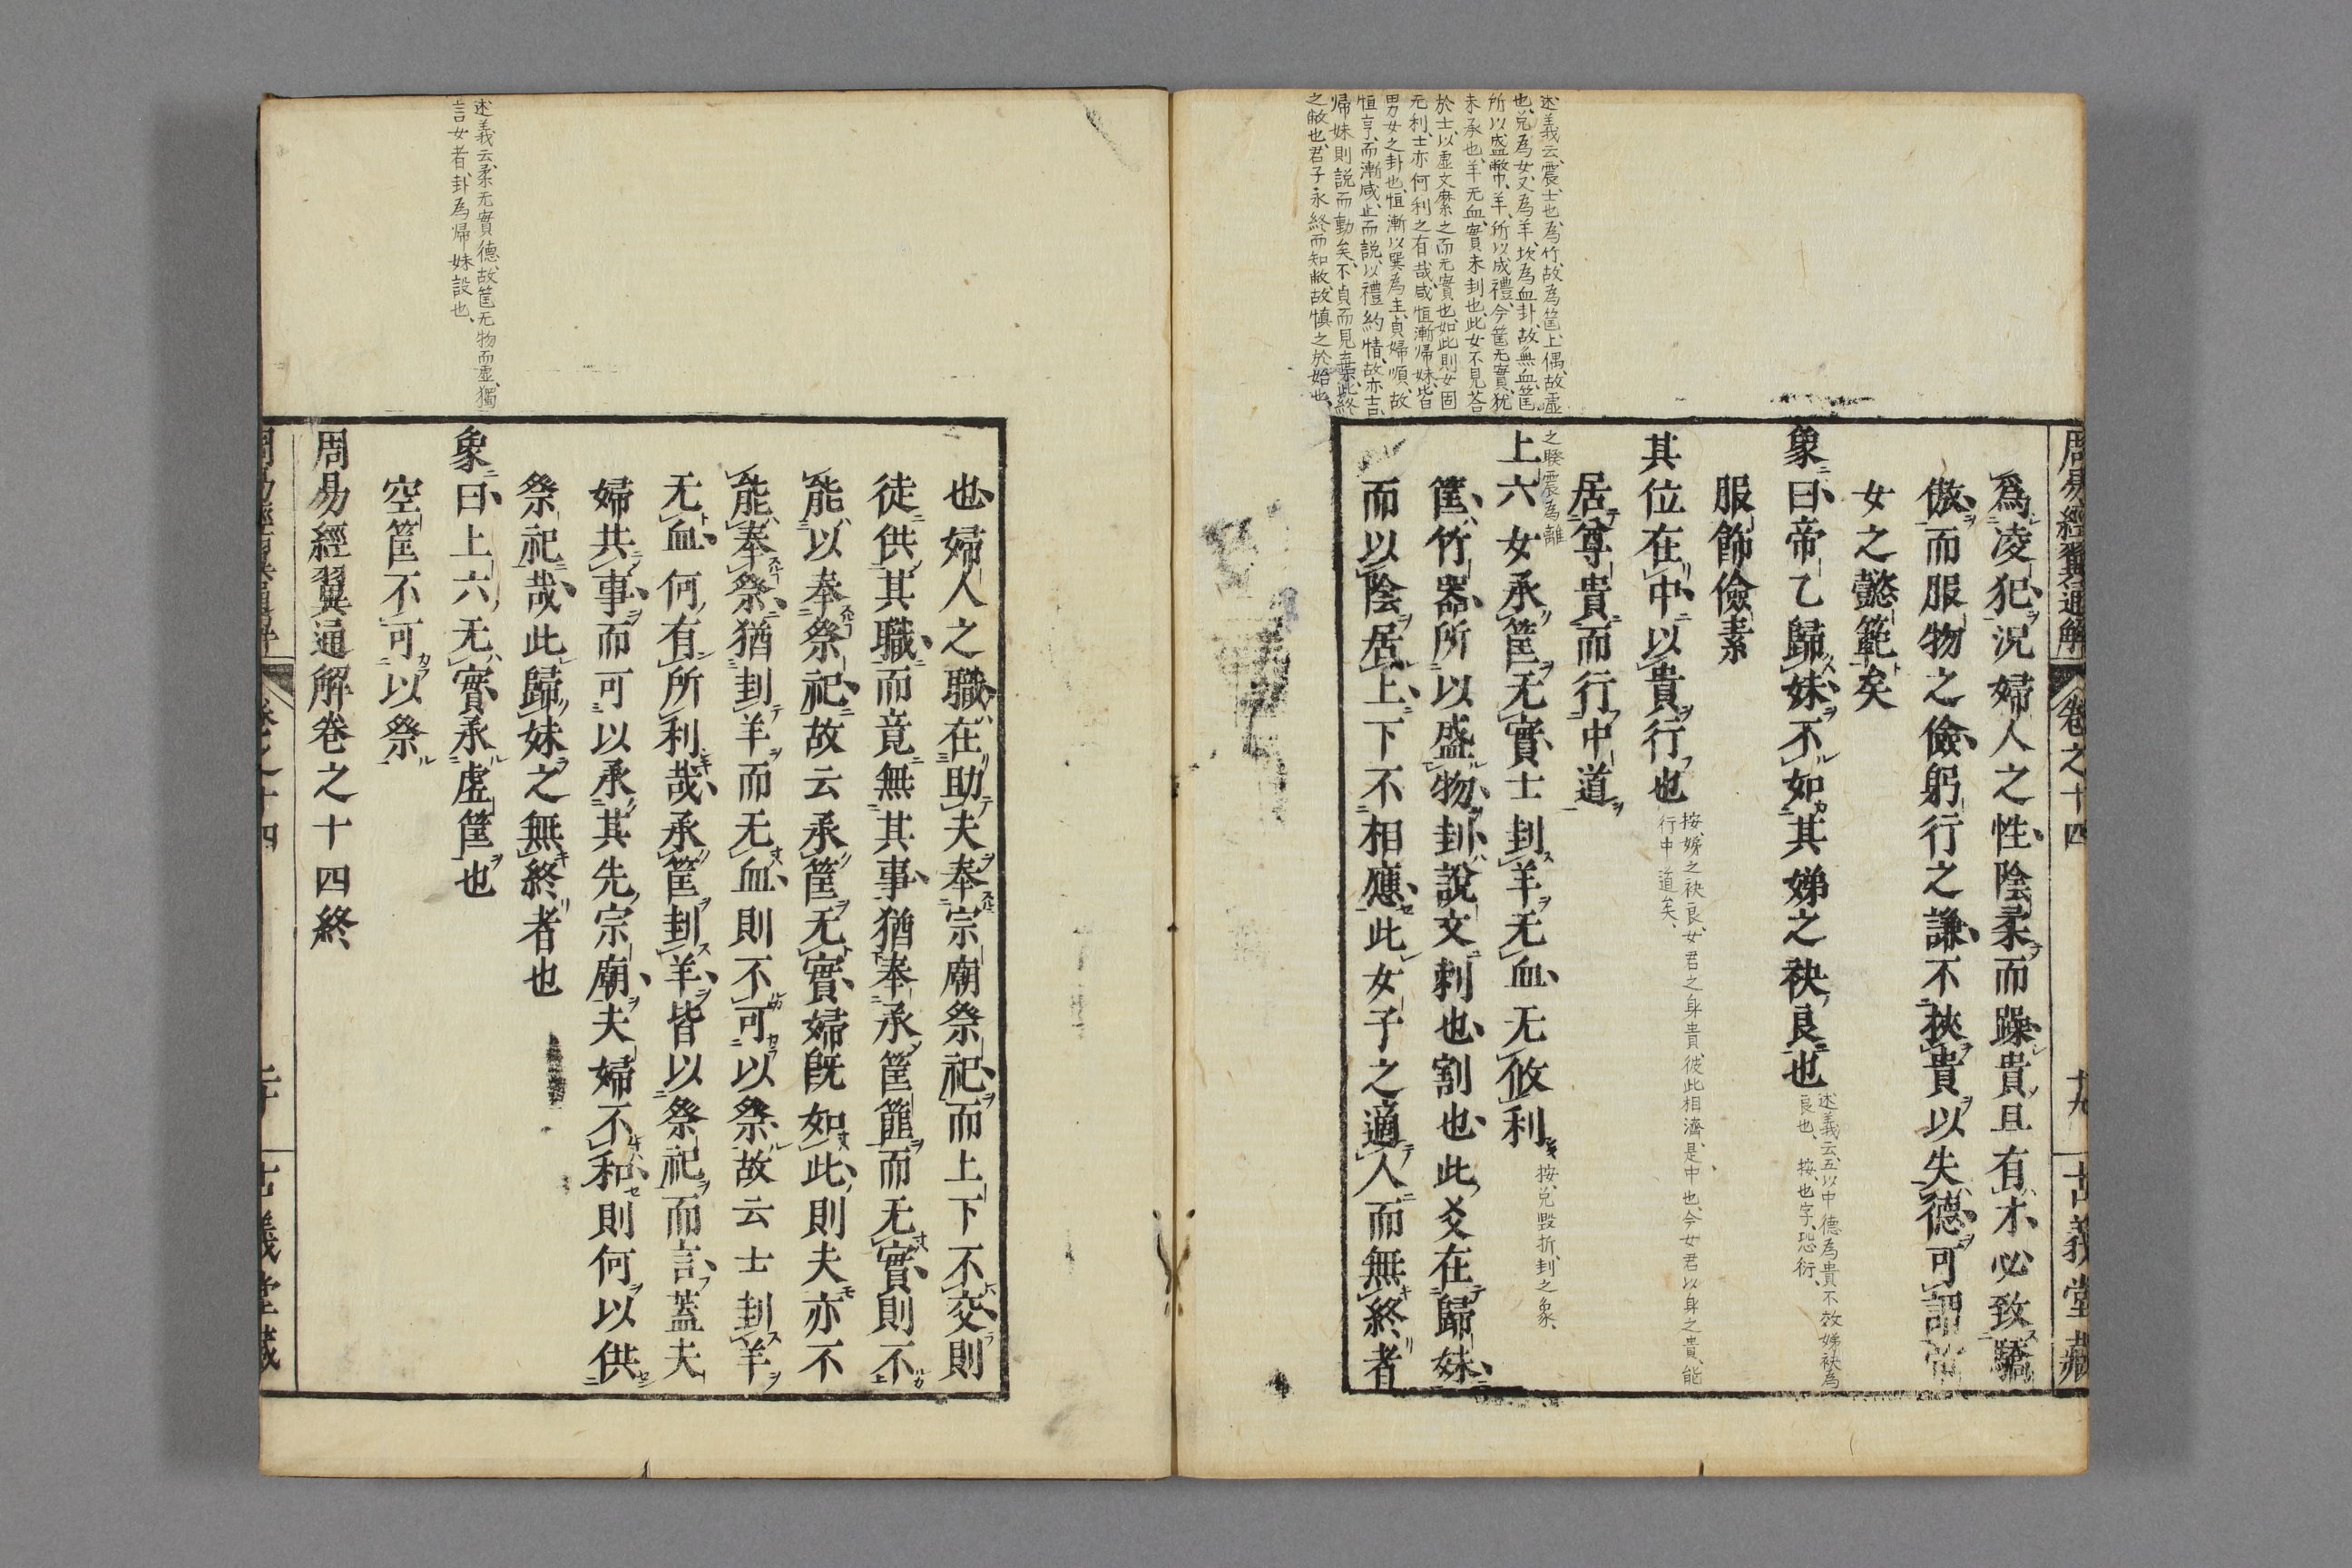 述義云、震、士也、為竹、故為筐、上偶、故虛
也、兌為女、又為羊、坎為血卦、故無血、筐、
所以盛幣巾、羊、所以成禮、今筐无實、猶
未承也、羊无血、實未刲也、此女不見荅
於士、以虛文縻之而无實也、如此則女固
无利、士亦何利之有哉、咸恒漸歸妹、皆
男女之卦也、恒漸以巽為主、貞婦順、故
恒亨、而漸咸、止而説、以禮約情、故亦吉、
帰妹則説而動矣、不貞而見棄、此終
之敝也、君子永終而知敝、故慎之於始也、
周易經翼通解 卷之十四 十九 古義堂藏
爲凌犯況婦人之性陰柔而躁貴且有才必致驕
傲而服物之儉躬行之謙不挾貴以失德可謂
女之懿範矣
象曰帝乙歸妹不如其娣之袂良也
述義云、五以中德為貴、不效娣袂為
良也、 按、也字、恐衍、
服飾儉素
其位在中以貴行也
按、娣之袂良、女君之身貴、彼此相濟、是中也、今女君以身之貴、能
行中道矣、
居尊貴而行中道
之睽震為離
上六女承筐无實士刲羊无血无攸利
按、兌毀折、刲之象、
筐竹器所以盛物刲說文刺也割也此爻在歸妹
而以陰居上下不相應此女子之適人而無終者
也婦人之職在助夫奉宗廟祭祀而上下不交則
徒供其職而竟無其事猶奉承筐篚而无實則不
能以奉祭祀故云承筐无實婦旣如此則夫亦不
能奉祭猶刲羊而无血則不可以祭故云士刲羊
无血何有所利哉承筐刲羊皆以祭祀而言蓋夫
婦共事而可以承其先宗廟夫婦不和則何以供
祭祀哉此歸妹之無終者也
述義云、柔无實德、故筐无物而虛、獨
言女者、卦為帰妹設也、
象曰上六无實承虛筐也
空筐不可以祭
周易經翼通解卷之十四終
卷之十四 古義堂藏